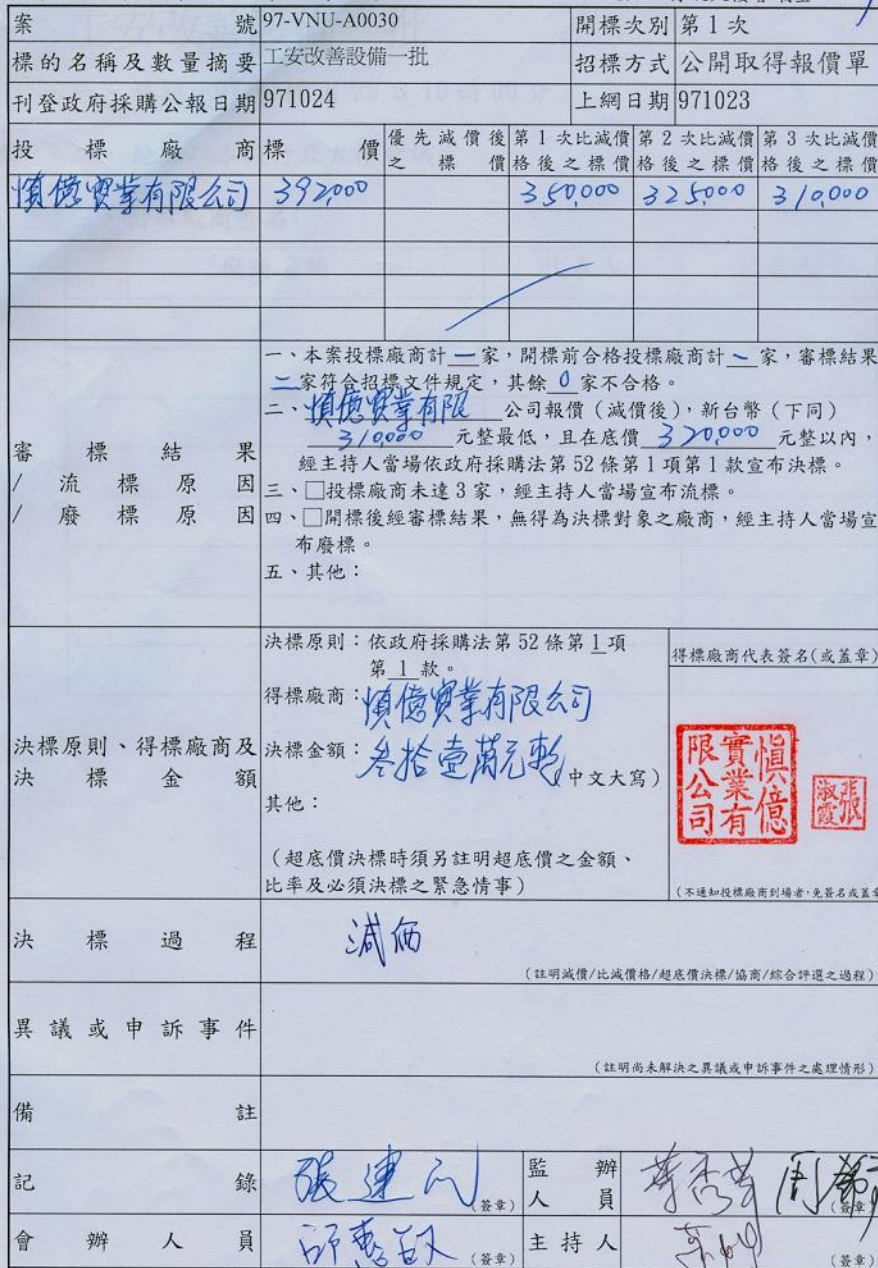 案號 97-VNU-A0030 開標次別 第 1 次
標的名稱及數量摘要 工安改善設備一批 招標方式 公開取得報價單
刊登政府採購公報日期 971024 上網日期 971023
投標廠商 標價 優先減價後之標價 第 1 次比減價格後之標價 第 2 次比減價格後之標價 第 3 次比減價格後之標價
慎億實業有限公司 392,000 350,000 325,000 310,000
審標結果/流標原因/廢標原因
一、本案投標廠商計一家,開標前合格投標廠商計一家,審標結果
家符合招標文件規定,其餘 0 家不合格。
二、慎億實業有限 公司報價(減價後),新台幣(下同)
310,000 元整最低,且在底價 320,000 元整以內,
經主持人當場依政府採購法第 52 條第 1 項第 1 款宣布決標。
三、□投標廠商未達 3 家,經主持人當場宣布流標。
四、□開標後經審標結果,無得為決標對象之廠商,經主持人當場宣
布廢標。
五、其他:
決標原則、得標廠商及決標金額
決標原則:依政府採購法第 52 條第 1 項
第 1 款。
得標廠商:慎億實業有限公司
決標金額:叁拾壹萬元整(中文大寫)
其他:
(超底價決標時須另註明超底價之金額、
比率及必須決標之緊急情事)
得標廠商代表簽名(或蓋章)
慎億實業有限公司
張淑霞
(不通知投標廠商到場者,免簽名或蓋章
決標過程 減価
(註明減價/比減價格/超底價決標/協商/綜合評選之過程)
異議或申訴事件
(註明尚未解決之異議或申訴事件之處理情形)
備註
記錄 (簽章) 監辦人員 (簽章)
會辦人員 (簽章) 主持人 (簽章)